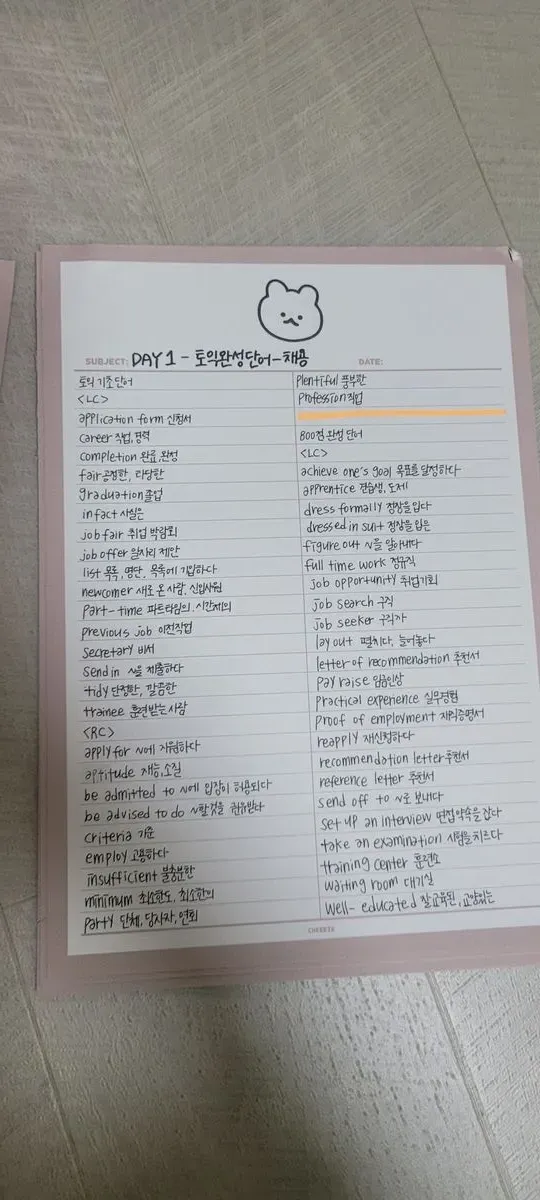 SUBJECT: DAY 1 - 토익완성단어 - 채용
DATE:
토익 기초 단어
<LC>
application form 신청서
career 직업, 경력
completion 완료, 완성
fair 공정한, 타당한
graduation 졸업
in fact 사실은
job fair 취업 박람회
job offer 일자리 제안
list 목록, 명단, 목록에 기입하다
newcomer 새로 온 사람, 신입사원
part-time 파트타임의, 시간제의
previous job 이전직업
secretary 비서
send in ~을 제출하다
tidy 단정한, 깔끔한
trainee 훈련받는 사람
<RC>
apply for ~에 지원하다
aptitude 재능, 소질
be admitted to ~에 입장이 허용되다
be advised to do ~할것을 권유받다
criteria 기준
employ 고용하다
insufficient 불충분한
minimum 최소한도, 최소한의
party 단체, 당사자, 연회
plentiful 풍부한
profession 직업
800점 완성 단어
<LC>
achieve one's goal 목표를 달성하다
apprentice 견습생, 도제
dress formally 정장을 입다
dressed in suit 정장을 입은
figure out ~을 알아내다
full time work 정규직
job opportunity 취업기회
job search 구직
job seeker 구직자
lay out 펼치다, 늘어놓다
letter of recommendation 추천서
pay raise 임금인상
practical experience 실무경험
proof of employment 재직증명서
reapply 재신청하다
recommendation letter 추천서
reference letter 추천서
send off to ~로 보내다
set up an interview 면접약속을 잡다
take an examination 시험을 치르다
training center 훈련소
waiting room 대기실
well-educated 잘 교육된, 교양있는